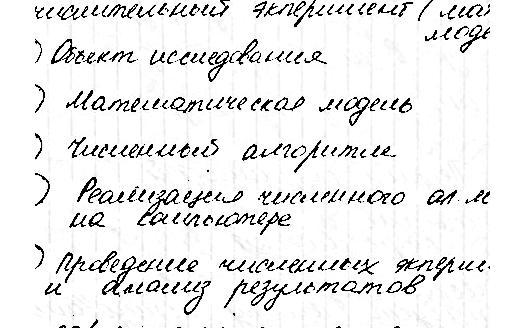 числительный эксперимент (мат
модe
) Объект исследования
) Математическая модель
) Численный алгоритм
) Реализация численного ал. м
на компьютере
) Проведение численных экперим.
и анализ результатов